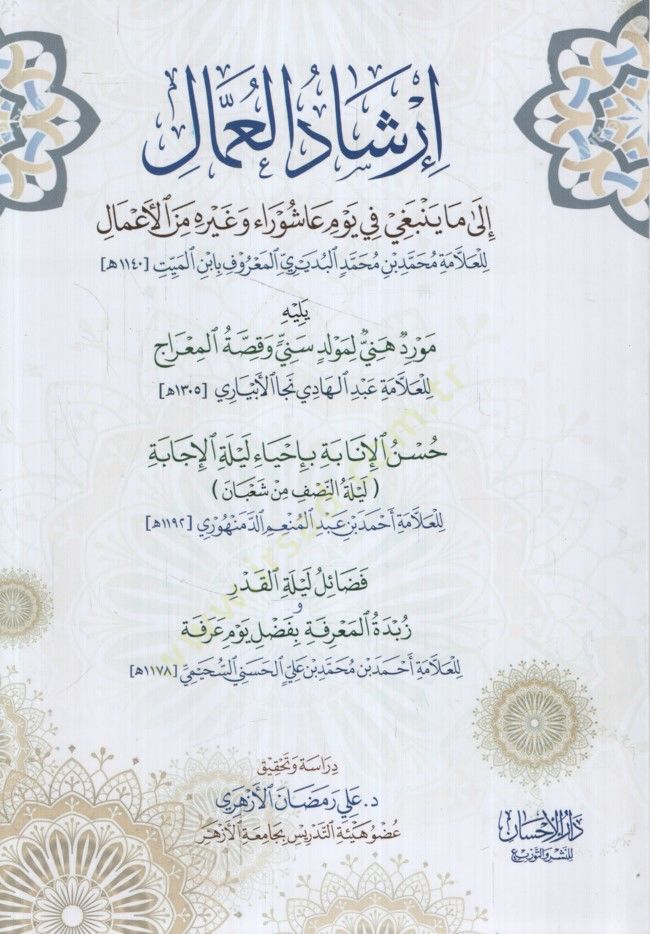 إِرْشَادُ الْعُمَّالِ
إِلَى مَا يَنْبَغِي فِي يَوْمِ عَاشُورَاء وَغَيْرِهِ مِنَ الْأَعْمَالِ
لِلعَلَّامَةِ مُحَمَّدِ بْنِ مُحَمَّدٍ البُدَيْرِيِّ المَعْرُوفِ بِابْنِ المَيِّتِ [١١٤٠هـ]
يَلِيْهِ
مَوْرِدٌ هَنِيٌّ لِمَوْلِدٍ سَنِيٍّ وَقِصَّةُ المِعْرَاجِ
لِلعَلَّامَةِ عَبْدِ الهَادِي نَجَا الأَبْيَارِي [١٣٠٥هـ]
حُسْنُ الإِنَابَةِ بِإِحْيَاءِ لَيْلَةِ الإِجَابَةِ
( لَيْلَةُ النِّصْفِ مِنْ شَعْبَانَ )
لِلعَلَّامَةِ أَحْمَدَ بْنِ عَبْدِ المُنْعِمِ الدَّمَنْهُورِي [١١٩٢هـ]
فَضَائِلُ لَيْلَةِ القَدْرِ
وَ
زُبْدَةُ المَعْرِفَةِ بِفَضْلِ يَوْمِ عَرَفَةَ
لِلعَلَّامَةِ أَحْمَدَ بْنِ مُحَمَّدِ بْنِ عَلِيٍّ الحَسَنِي السُّحَيْمِيِّ [١١٧٨هـ]
دِرَاسَة وَتَحْقِيق
د. عَلِي رَمَضَان الأَزْهَرِي
عُضْو هَيْئَةِ التَّدْرِيْسِ بِجَامِعَةِ الأَزْهَر
دَارُ الإِحْسَان
لِلنَّشْرِ وَالتَّوْزِيْع